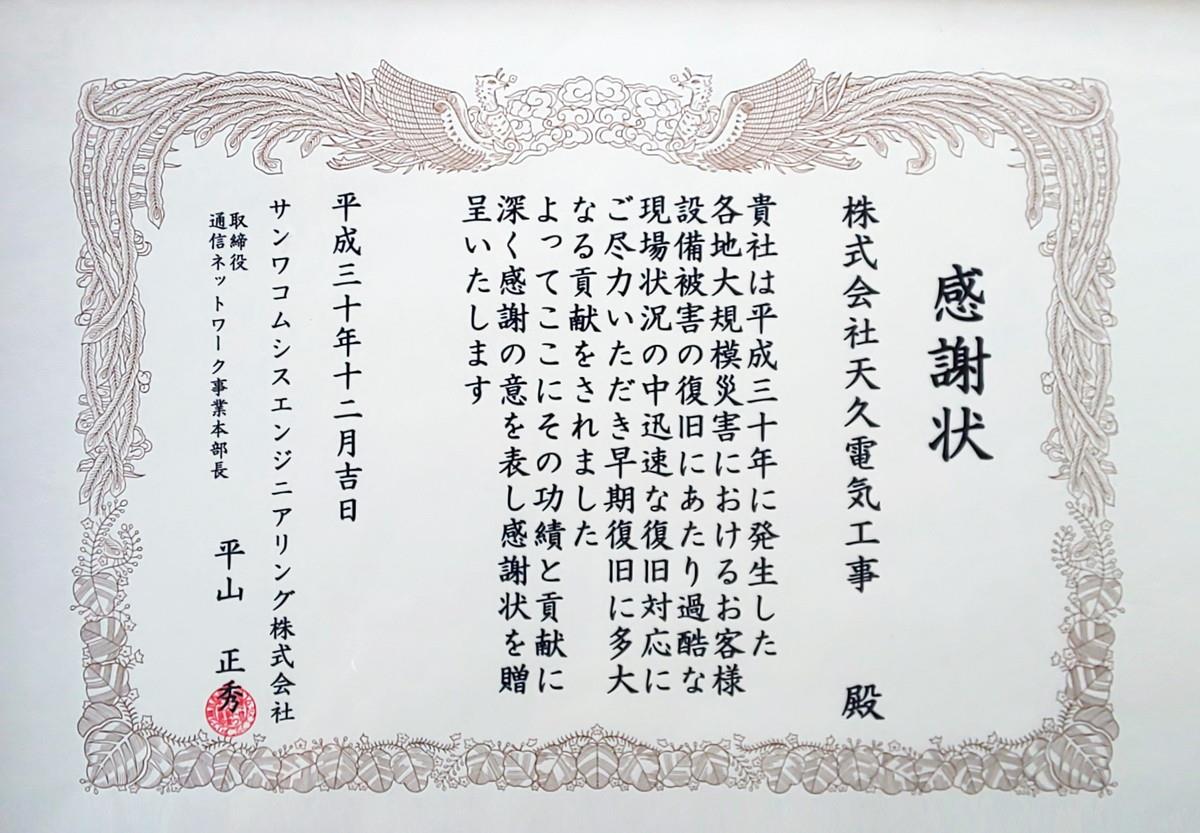 感謝状
株式会社天久電気工事 殿
貴社は平成三十年に発生した
各地大規模災害におけるお客様
設備被害の復旧にあたり過酷な
現場状況の中迅速な復旧対応に
ご尽力いただき早期復旧に多大
なる貢献をされました
よってここにその功績と貢献に
深く感謝の意を表し感謝状を贈
呈いたします
平成三十年十二月吉日
サンワコムシスエンジニアリング株式会社
取締役
通信ネットワーク事業本部長
平山 正秀